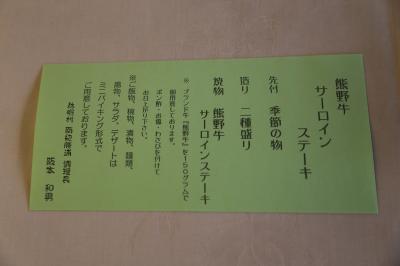 熊野牛
サーロイン
ステーキ
先付 季節の物
造り 二種盛り
焼物 熊野牛
サーロインステーキ
※ ブランド牛『熊野牛』を150グラムで
御用意しております。
ポン酢・お塩・わさびを付けて
お召上がり下さい。
※ご飯物、椀物、漬物、麺類、
揚物、サラダ、デザートは
ミニバイキング形式で
ご用意しております。
調理長
阪本 和男